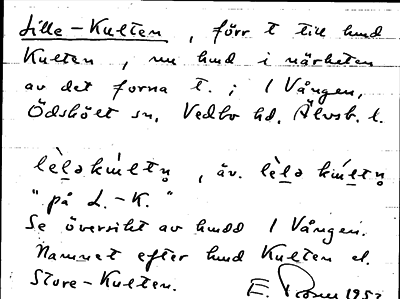 Lille-Kulten, förr t till hmd
Kulten, nu hmd i närheten
av det forna t. ; 1 Vången,
Ödskölt sn, Vedbo hd, Älvsb. l.
lèlə kúltn̥, äv. lèlə kúltn̥
"på L.-K."
Se översikt av hmdd 1 Vången.
Namnet efter hmd Kulten el.
Store-Kulten.
E. 1952